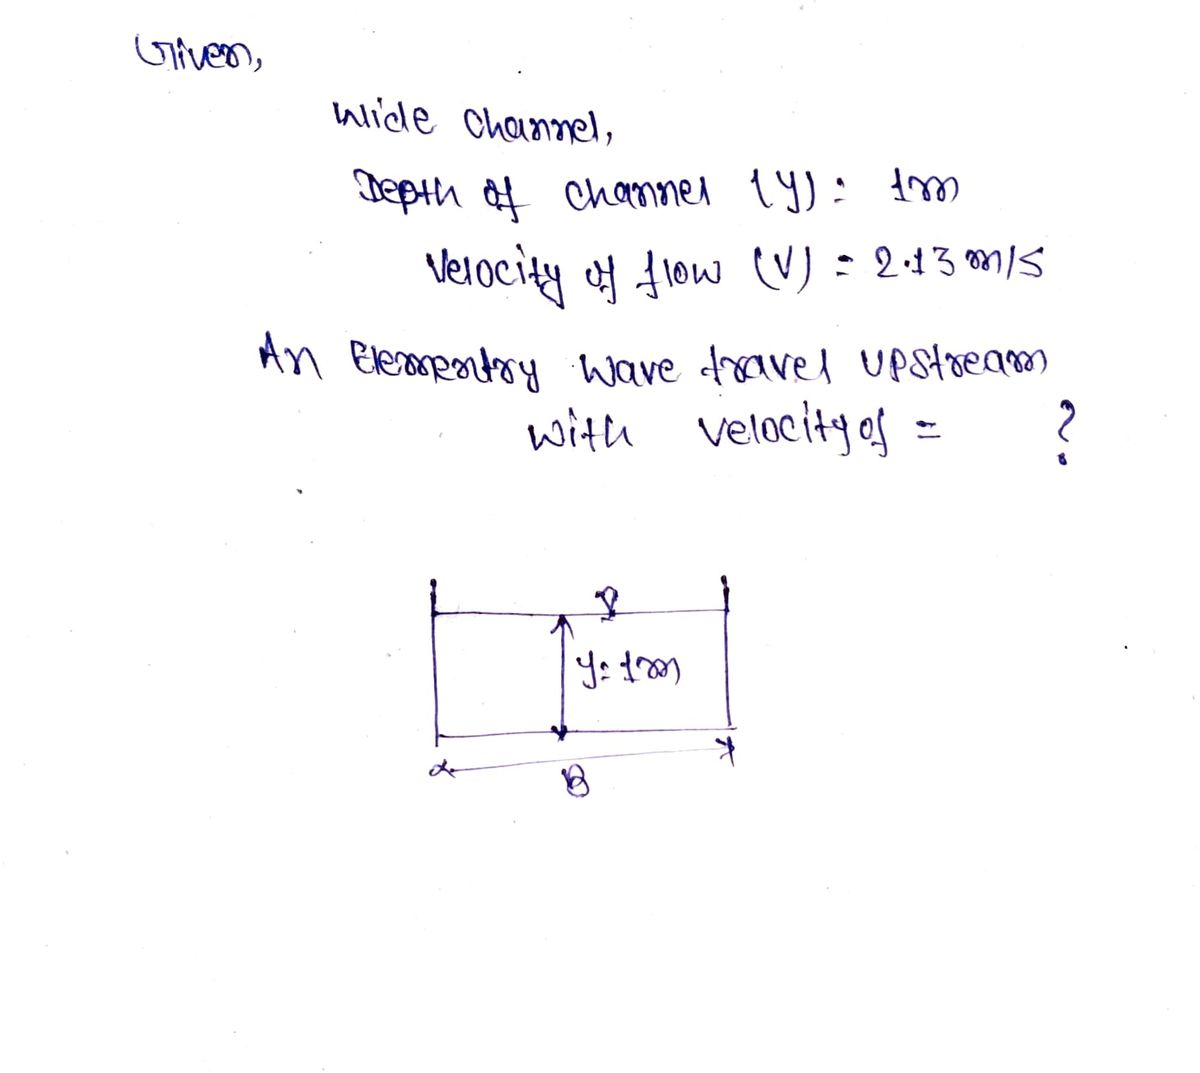 Given,
Wide Channel,
Depth of channel (y) = 1m
Velocity of flow (V) = 2.13 m/s
An Elementry wave travel upstream
with velocity of = ?
y = 1m
B